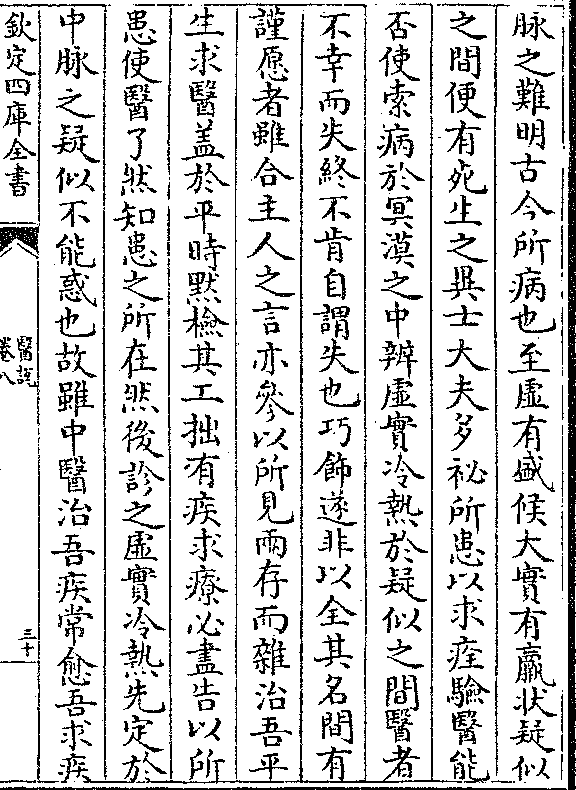 脉之難明古今所病也至虚有盛候大實有羸状疑似
之間便有死生之異士大夫多祕所患以求痊驗醫能
否使索病於冥漠之中辨虚實冷熱於疑似之間醫者
不幸而失終不肯自謂失也巧飾遂非以全其名間有
謹愿者雖合主人之言亦參以所見兩存而雜治吾平
生求醫盖於平時黙檢其工拙有疾求療必盡告以所
患使醫了然知患之所在然後診之虚實冷熱先定於
中脉之疑似不能惑也故雖中醫治吾疾常愈吾求疾
欽定四庫全書
醫說
卷八
三十